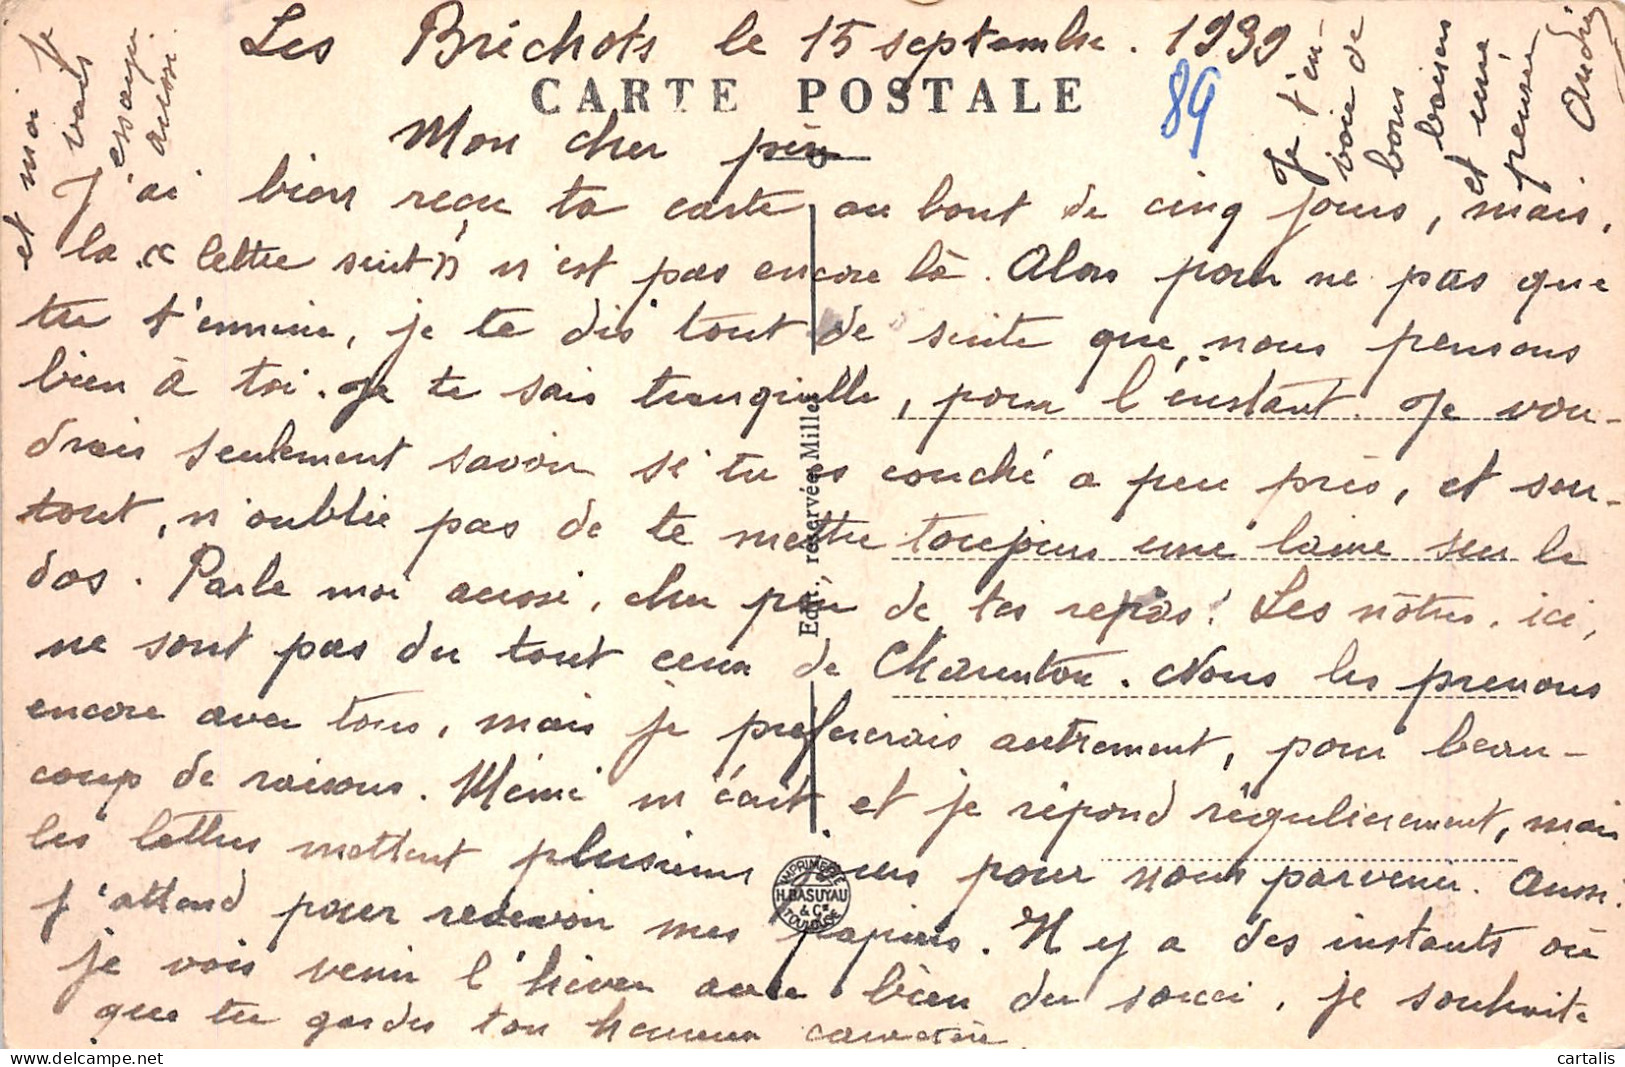 Les Brichots le 15 septembre. 1939
CARTE POSTALE
89
Mon cher père
J'ai bien reçu ta carte au bout de cinq jours, mais,
la « lettre suit » n'est pas encore là. Alors pour ne pas que
tu t'ennuie, je te dis tout de suite que, nous pensons
bien à toi. Je te sais tranquille, pour l'instant. Je vou-
drais seulement savoir si tu es couché a peu près, et sur-
tout, n'oublie pas de te mettre toujours une laine sur le
dos. Parle moi aussi, cher père de tes repas! Les nôtres, ici,
ne sont pas du tout ceux de Charenton. Nous les prenons
encore avec tous, mais je prefererais autrement, pour beau-
coup de raisons. Mémé m'écrit et je répond régulierement, mais
les lettres mettent plusieurs jours pour nous parvenir. Aussi
j'attend pour recevoir mes papiers. Il y a des instants où
je vois venir l'hiver avec bien du souci, je souhaite
que tu gardes ton heureux caractère
et moi je
vais
essayer
aussi.
Je t'en-
voie de
bons
baisers
et une
pensée
André
Edit. réservée Mille
IMPRIMERIE
H. BASUYAU
& Cie
TOULOUSE
cartalis